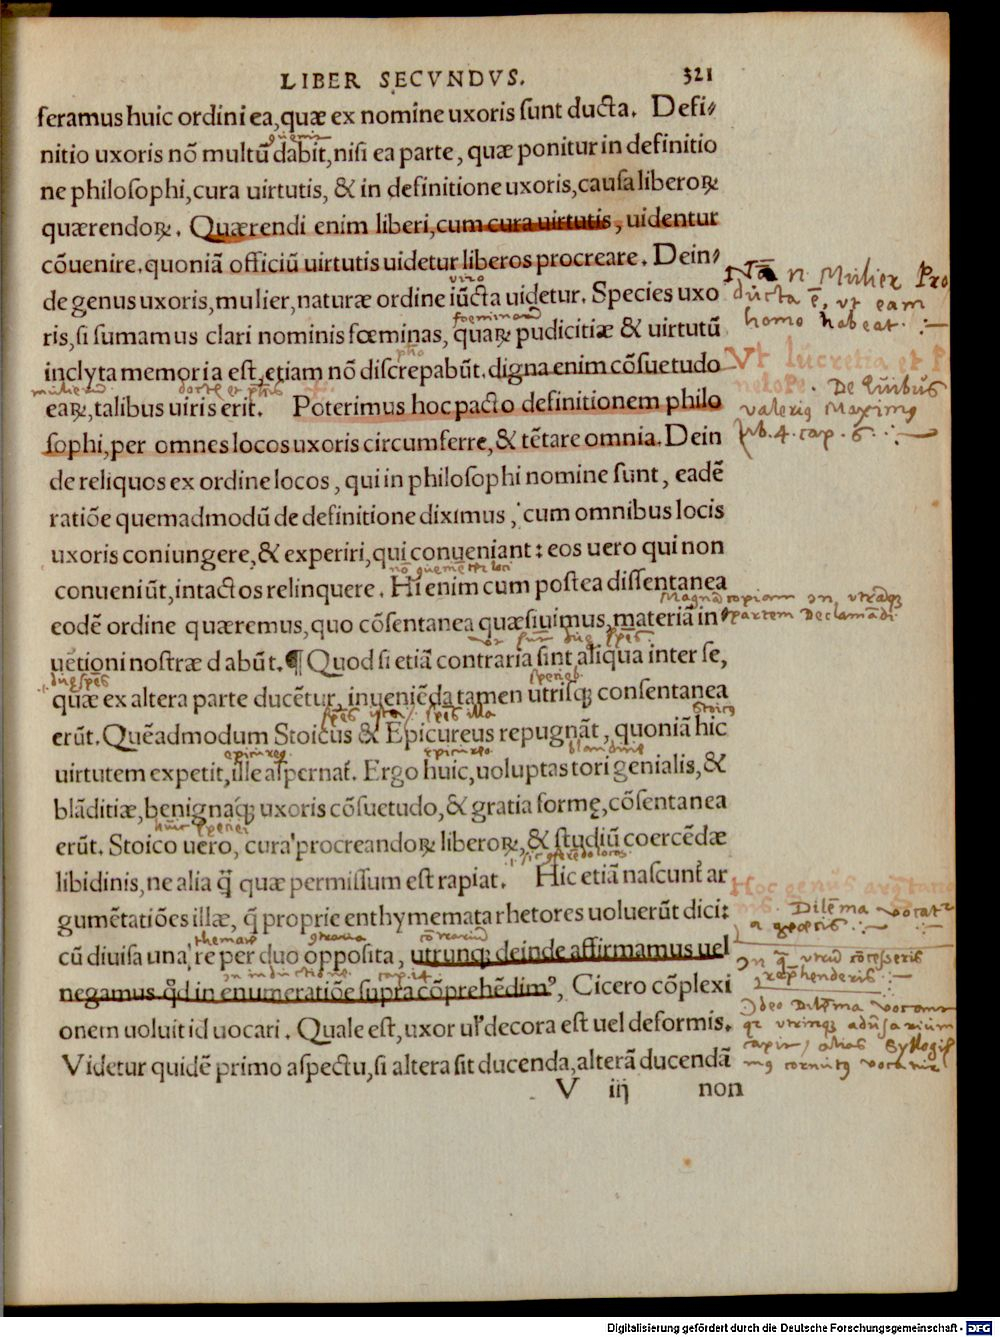 LIBER SECVNDVS. 321
feramus huic ordini ea, quæ ex nomine uxoris sunt ducta. Defi⸗
nitio uxoris nõ multũ dabit, nisi ea parte, quæ ponitur in definitio
ne philosophi, cura uirtutis, & in definitione uxoris, causa liberoꝝ
quærendoꝝ. Quærendi enim liberi, cum cura uirtutis, uidentur
cõuenire. quoniã officiũ uirtutis uidetur liberos procreare. Dein⸗
uiro
de genus uxoris, mulier, naturæ ordine iũcta uidetur. Species uxo
ris, si sumamus clari nominis fœminas, quaꝝ pudicitiæ & uirtutũ
inclyta memoria est, etiam nõ discrepabũt. digna enim cõsuetudo
eaꝝ, talibus uiris erit. Poterimus hoc pacto definitionem philo
sophi, per omnes locos uxoris circumferre, & tẽtare omnia. Dein
de reliquos ex ordine locos, qui in philosophi nomine sunt, eadẽ
ratiõe quemadmodũ de definitione diximus, cum omnibus locis
uxoris coniungere, & experiri, qui conueniant: eos uero qui non
conueniũt, intactos relinquere. Hi enim cum postea dissentanea
eodẽ ordine quæremus, quo cõsentanea quæsiuimus, materiã in⸗
uẽtioni nostræ dabũt. ¶ Quod si etiã contraria sint aliqua inter se,
quæ ex altera parte ducẽtur, inueniẽda tamen utrisq; consentanea
erũt. Quẽadmodum Stoicus & Epicureus repugnãt, quoniã hic
uirtutem expetit, ille aspernat᷑. Ergo huic, uoluptas tori genialis, &
blãditiæ, benignaq́; uxoris cõsuetudo, & gratia formę, cõsentanea
erũt. Stoico uero, cura procreandoꝝ liberoꝝ, & studiũ coercẽdæ
libidinis, ne alia q̃ quæ permissum est rapiat. Hic etiã nascunt᷑ ar
gumẽtatiões illæ, q̃ proprie enthymemata rhetores uoluerũt dici:
cũ diuisa una re per duo opposita, utrunq; deinde affirmamus uel
negamus qd̃ in enumeratiõe supra cõprehẽdimꝰ, Cicero cõplexi
onem uoluit id uocari. Quale est, uxor uľ decora est uel deformis.
Videtur quidẽ primo aspectu, si altera sit ducenda, alterã ducendã
V iij non
Mulier Pro
ducta ẽ, ut eam
homo habeat.
Vt Lucretia et P
nelope. De quibus
valeriꝰ Maximꝰ
lib. 4. cap. 6.
Magnã copiam in utrãqꝫ
partem Declamãdi
Dilẽma vocatᵣ
Digitalisierung gefördert durch die Deutsche Forschungsgemeinschaft - DFG